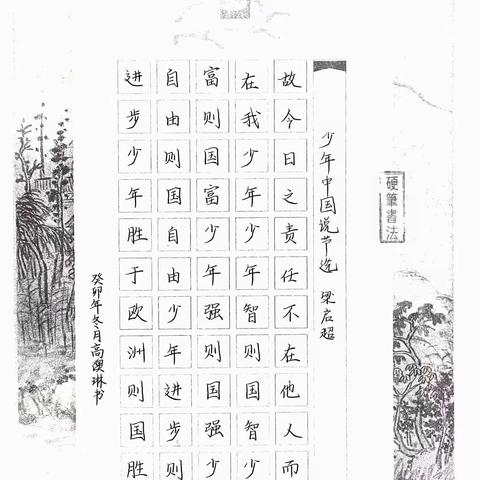 硬筆書法
少年中国说节选 梁启超
故今日之责任不在他人而
在我少年少年智则国智少
富则国富少年强则国强少
自由则国自由少年进步则
进步少年胜于欧洲则国胜
癸卯年冬月高澳琳书